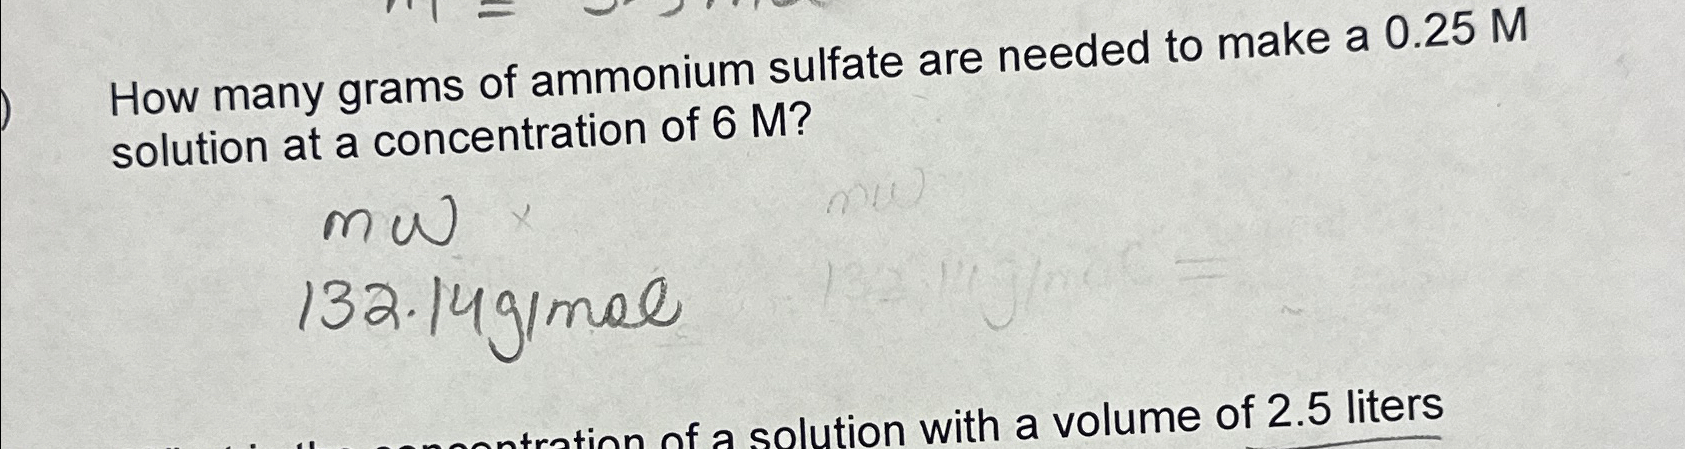 How many grams of ammonium sulfate are needed to make a 0.25 M
solution at a concentration of 6 M?
mw × mw
132.14g/mol 132.14g/mol =
concentration of a solution with a volume of 2.5 liters